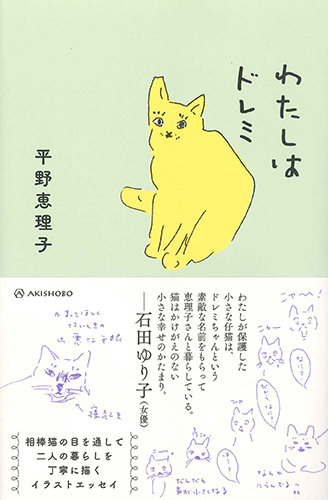 わたしは
ドレミ
平野恵理子
AKISHOBO
わたしが保護した
小さな仔猫は、
ドレミちゃんという
素敵な名前をもらって
恵理子さんと暮らしている。
猫はかけがえのない
小さな幸せのかたまり。
──石田ゆり子(女優)
相棒猫の目を通して
二人の暮らしを
丁寧に描く
イラストエッセイ
ニャー!
だんだん
声が小さくなる